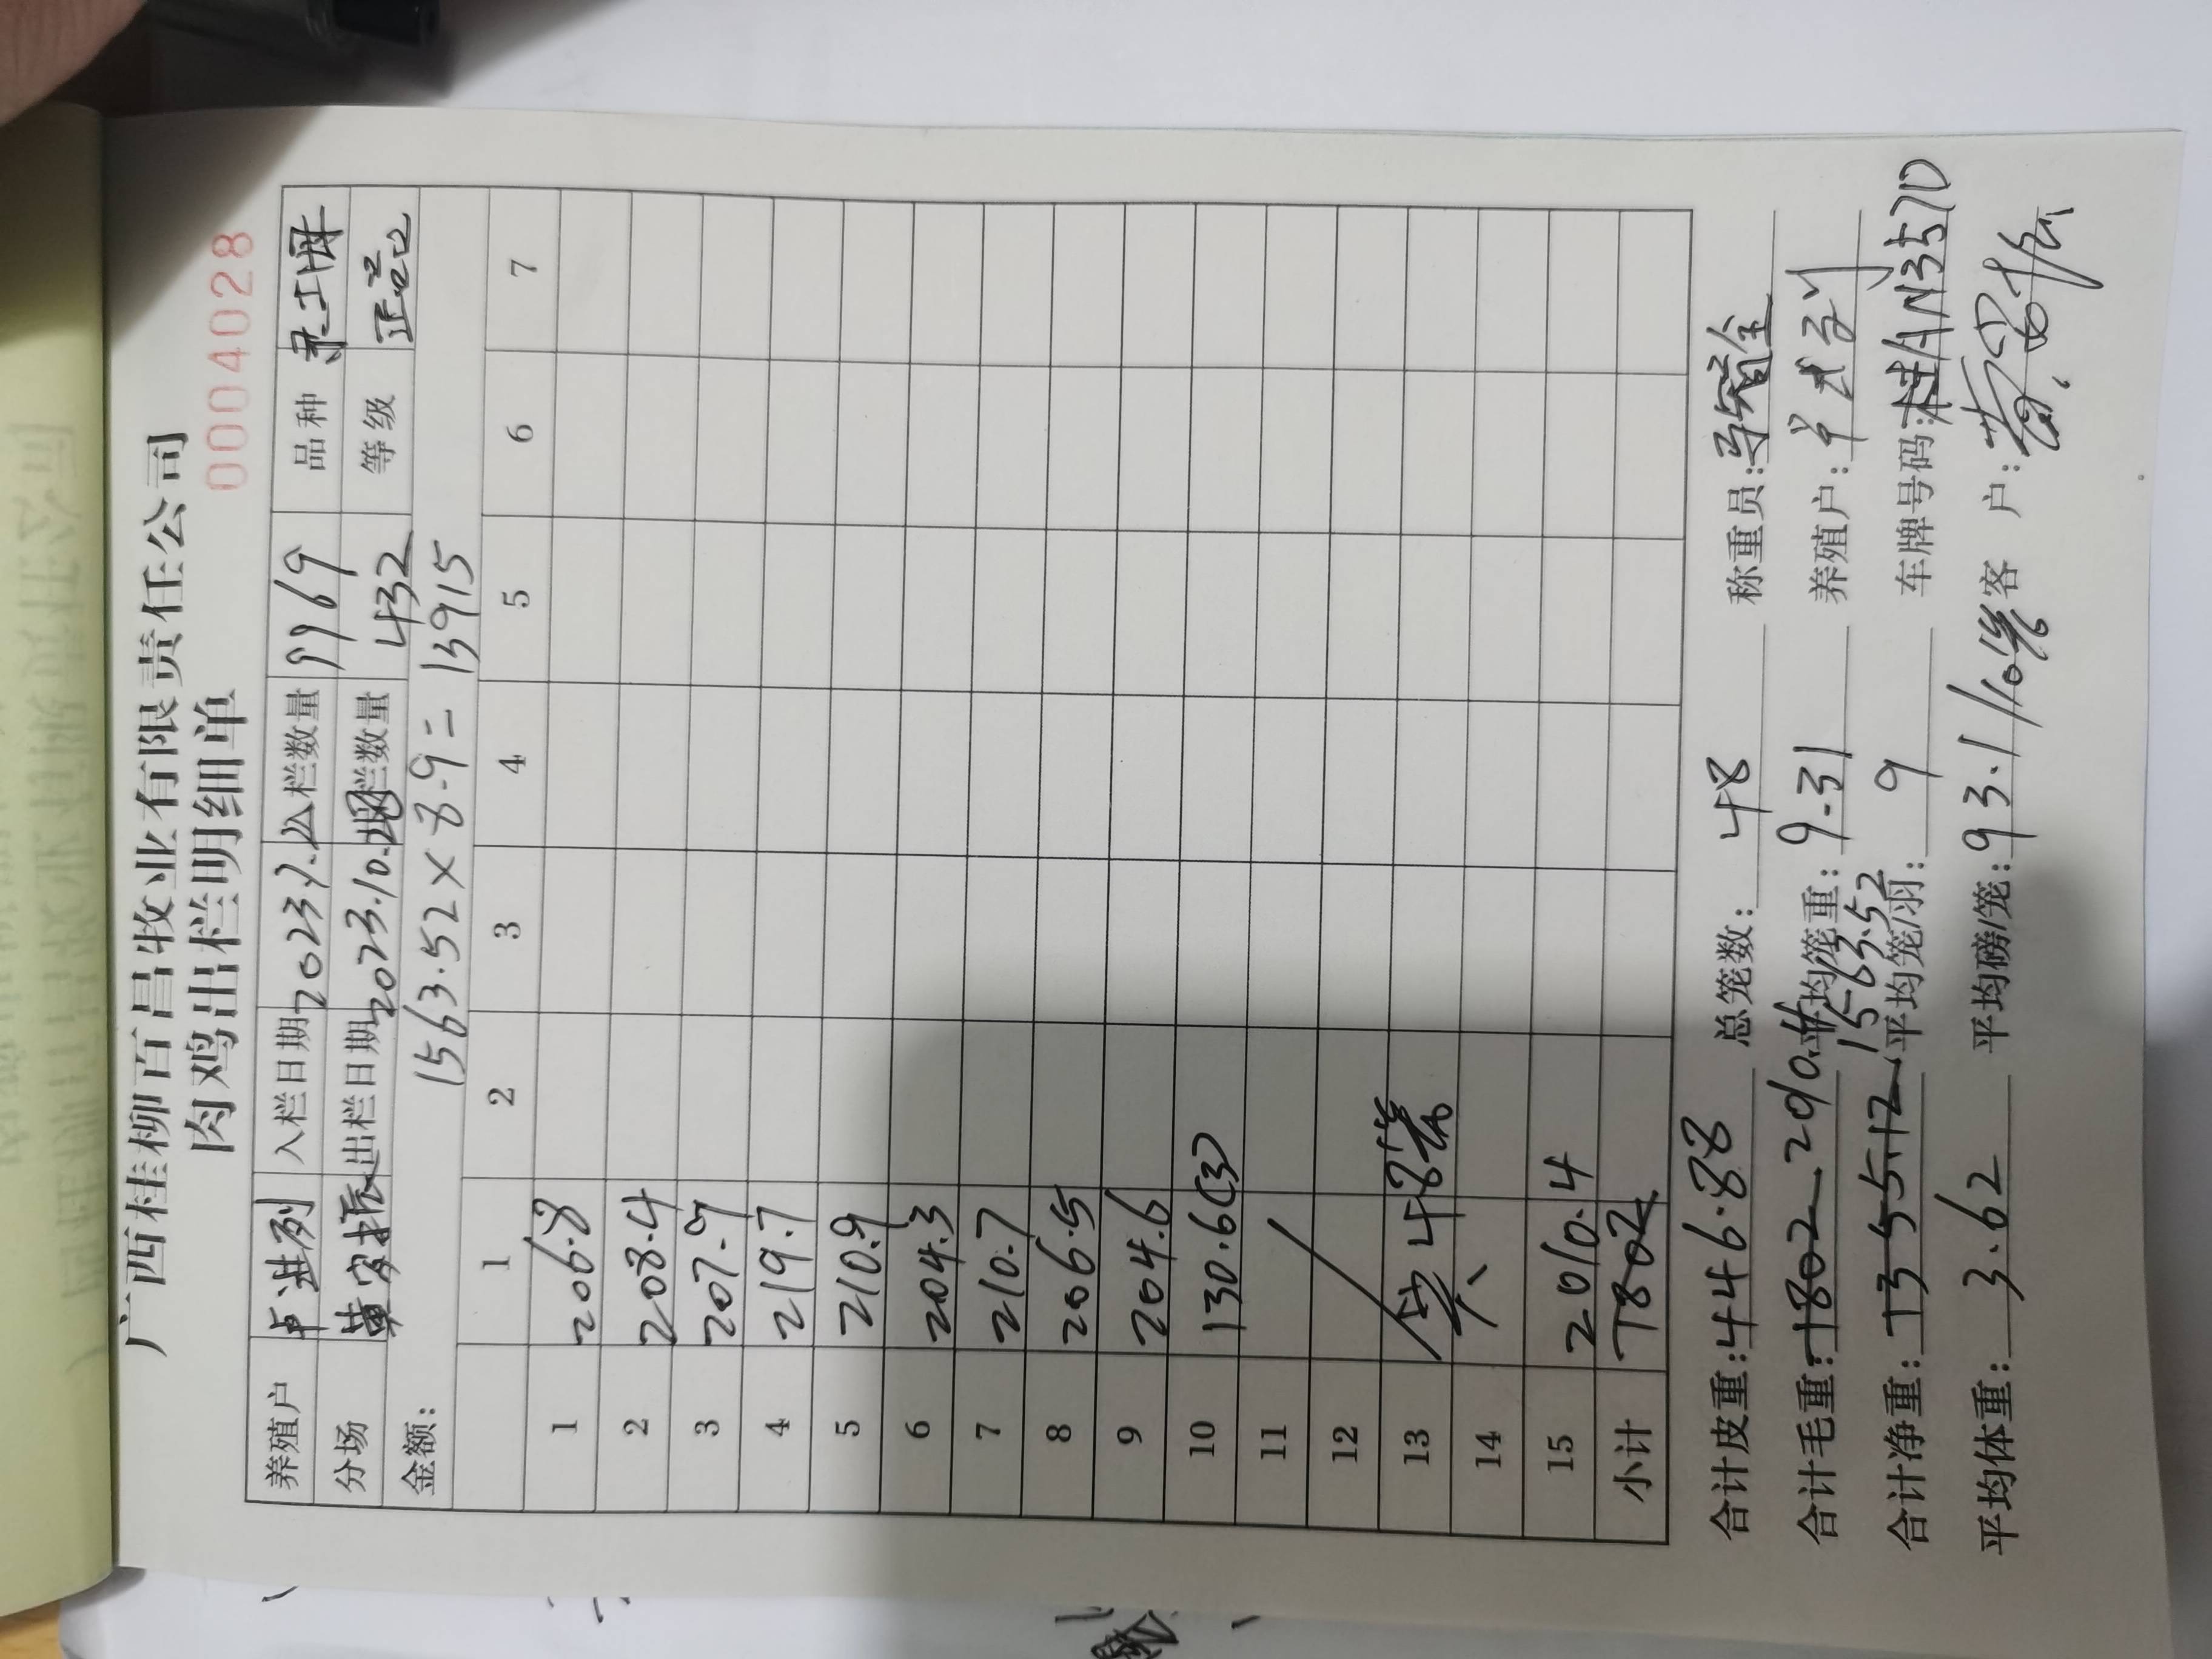 广西桂柳百昌牧业有限责任公司
肉鸡出栏明细单
0004028
养殖户 卢进列 入栏日期 2023 入栏数量 9969 品种
分场 黄安振 出栏日期 2023.10. 出栏数量 432 等级 正品
金额: 1563.52×8.9=13915
1 2 3 4 5 6 7
1 206.8
2 208.4
3 207.7
4 219.7
5 210.9
6 204.3
7 210.7
8 206.5
9 204.6
10 130.6(3)
11
12
13 共48笼
14
15 2010.4
小计 1802
合计皮重:446.88 总笼数: 48 称重员:
合计毛重:1802 2010.4 平均笼重: 9.31 养殖户:
合计净重:1355.12 1563.52 平均笼/羽: 9 车牌号码:桂AN357D
平均体重: 3.62 平均磅/笼: 93.1 /10笼 客户: